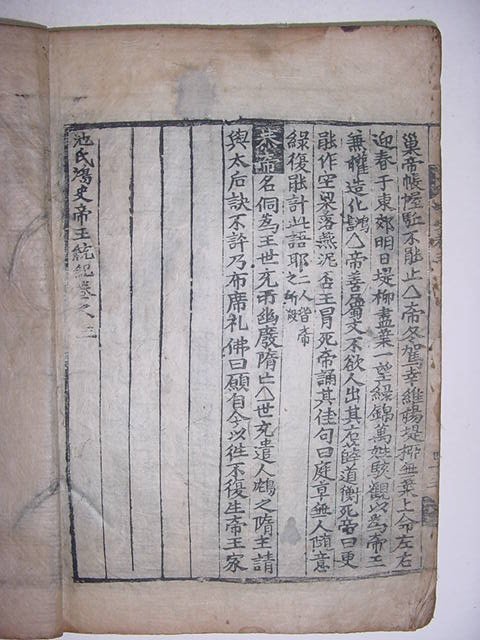 巢帝帳幄駐不能止△帝冬駕幸維碭堤柳無葉上命左右
迎春于東郊明日堤柳盡葉一望綠錦萬姓駭觀以為帝王
無權造化讃△帝善屬文不欲人出其右薛道衡死帝曰更
能作空梁落燕泥否王冑死帝誦其佳句曰庭草無人隨意
綠復能計此語耶二人皆帝之所殺
恭帝名侗為王世充所幽廢隋亡△世充遣人鴆之隋主請
與太后訣不許乃布席礼佛曰願自今以往不復生帝王家
池氏鴻史帝王統紀卷之三